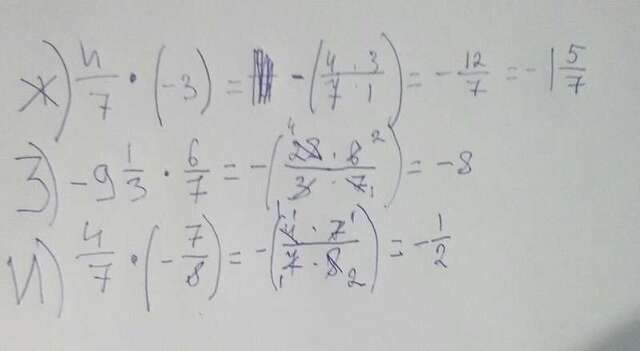 ж) 4/7 · (-3) = -(4 · 3 / 7 · 1) = -12/7 = -1 5/7
з) -9 1/3 · 6/7 = -(28 · 6 / 3 · 7) = -8
и) 4/7 · (-7/8) = -(4 · 7 / 7 · 8) = -1/2